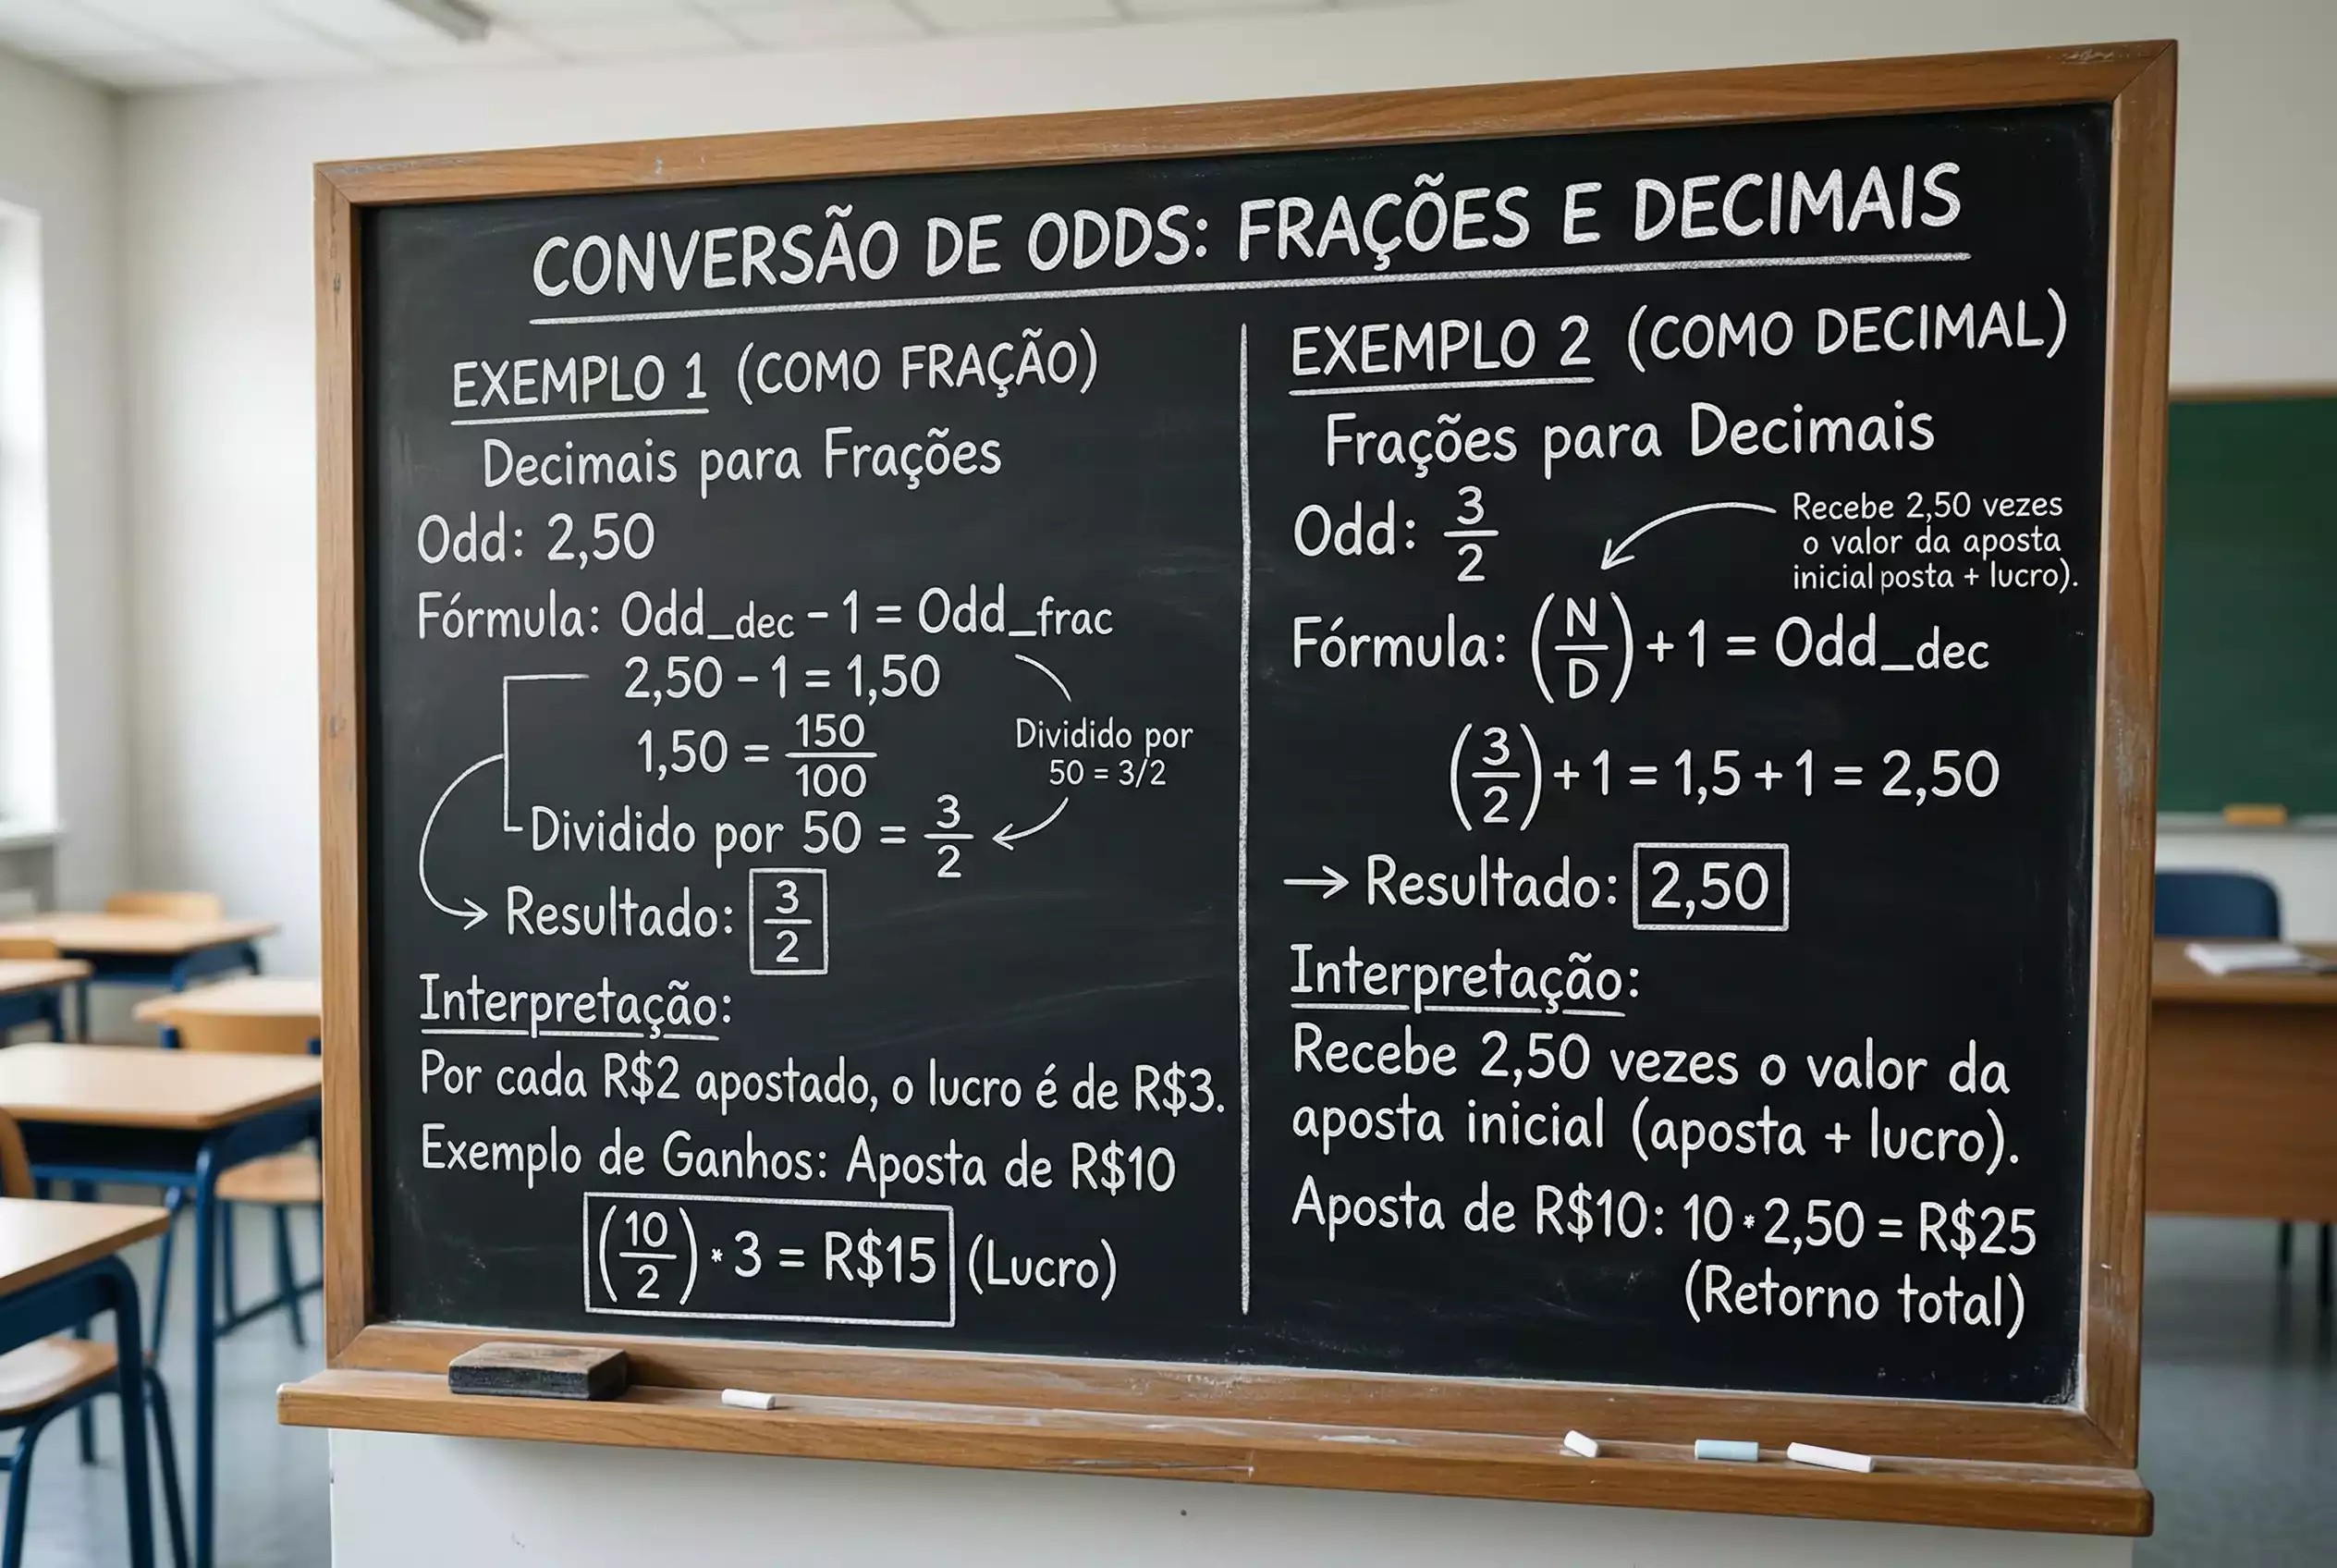 CONVERSÃO DE ODDS: FRAÇÕES E DECIMAIS
EXEMPLO 1 (COMO FRAÇÃO)
Decimais para Frações
Odd: 2,50
Fórmula: Odd_dec - 1 = Odd_frac
2,50 - 1 = 1,50
1,50 = 150/100
Dividido por
50 = 3/2
Dividido por 50 = 3/2
Resultado: 3/2
Interpretação:
Por cada R$2 apostado, o lucro é de R$3.
Exemplo de Ganhos: Aposta de R$10
(10/2) * 3 = R$15 (Lucro)
EXEMPLO 2 (COMO DECIMAL)
Frações para Decimais
Odd: 3/2
Recebe 2,50 vezes
o valor da aposta
inicial posta + lucro).
Fórmula: (N/D) + 1 = Odd_dec
(3/2) + 1 = 1,5 + 1 = 2,50
→ Resultado: 2,50
Interpretação:
Recebe 2,50 vezes o valor da
aposta inicial (aposta + lucro).
Aposta de R$10: 10 * 2,50 = R$25
(Retorno total)